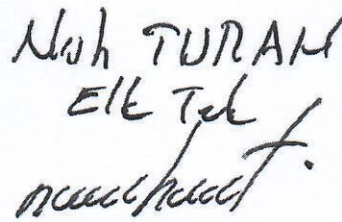 Nuh TURAN
Elk Tek